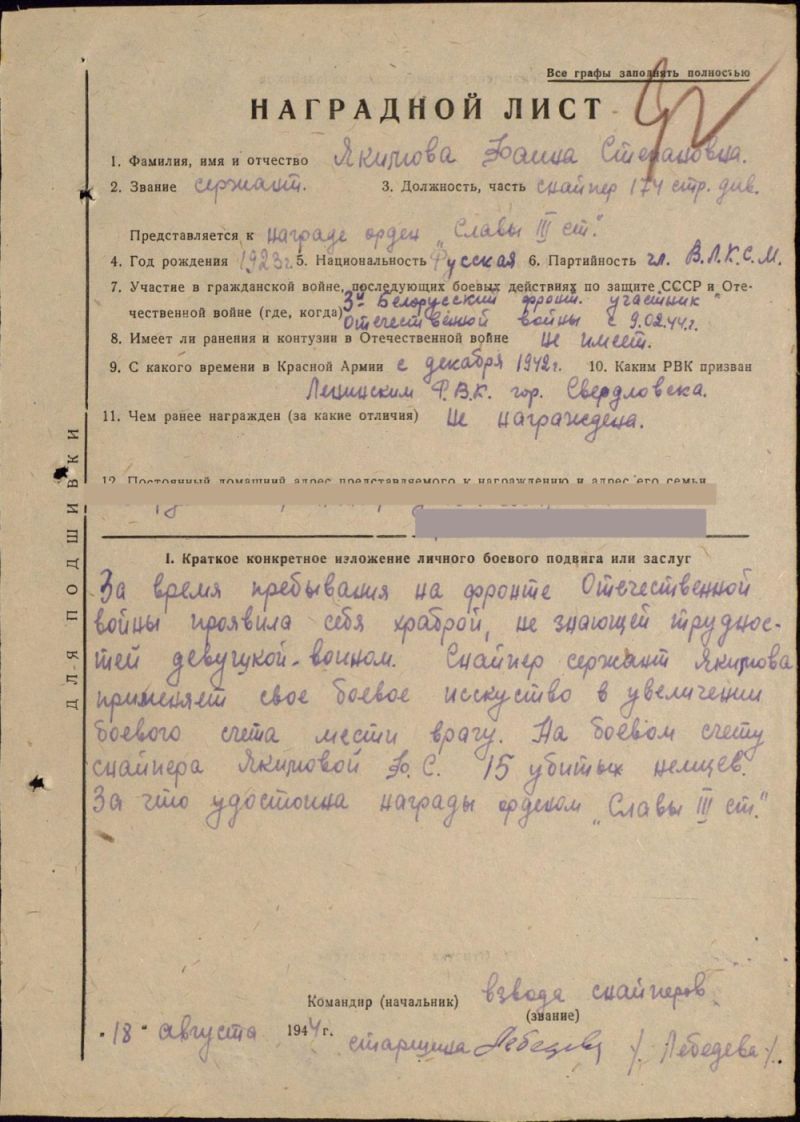 Все графы заполнять полностью
НАГРАДНОЙ ЛИСТ
1. Фамилия, имя и отчество Якимова Фаина Степановна.
2. Звание сержант. 3. Должность, часть снайпер 174 стр. див.
Представляется к награде орден „Славы III ст."
4. Год рождения 1923 г. 5. Национальность Русская 6. Партийность чл. В.Л.К.С.М.
7. Участие в гражданской войне, последующих боевых действиях по защите СССР и Оте-
чественной войне (где, когда) 3й Белорусский фронт. участник
Отечественной войны с 9.02.44 г.
8. Имеет ли ранения и контузии в Отечественной войне Не имеет.
9. С какого времени в Красной Армии с декабря 1942 г. 10. Каким РВК призван
Ленинским Р.В.К. гор. Свердловска.
11. Чем ранее награжден (за какие отличия) Не награждена.
12. Постоянный домашний адрес представляемого к награждению и адрес его семьи
I. Краткое конкретное изложение личного боевого подвига или заслуг
За время пребывания на фронте Отечественной
войны проявила себя храброй, не знающей труднос-
тей девушкой-воином. Снайпер сержант Якимова
применяет свое боевое исскуство в увеличении
боевого счета мести врагу. На боевом счету
снайпера Якимовой Ф. С. 15 убитых немцев.
За что удостоина награды орденом „Славы III ст."
Командир (начальник) взвода снайперов
(звание)
"18" августа 1944 г. старшина Лебедева /Лебедева/.
ДЛЯ ПОДШИВКИ